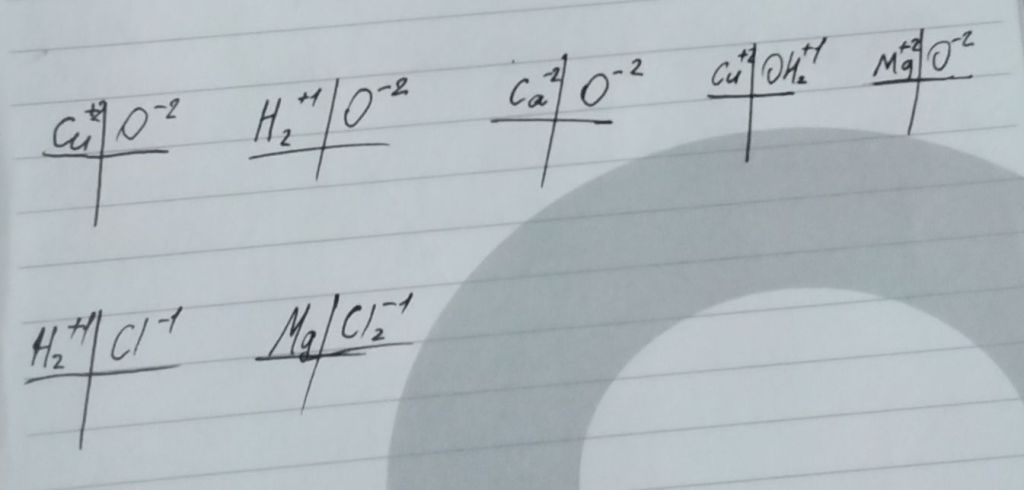 Cu⁺²|O⁻² H₂⁺¹|O⁻² Ca⁻²|O⁻² Cu⁺²|OH₂⁺¹ Mg⁺²|O⁻²
H₂⁺¹|Cl⁻¹ Mg|Cl₂⁻¹